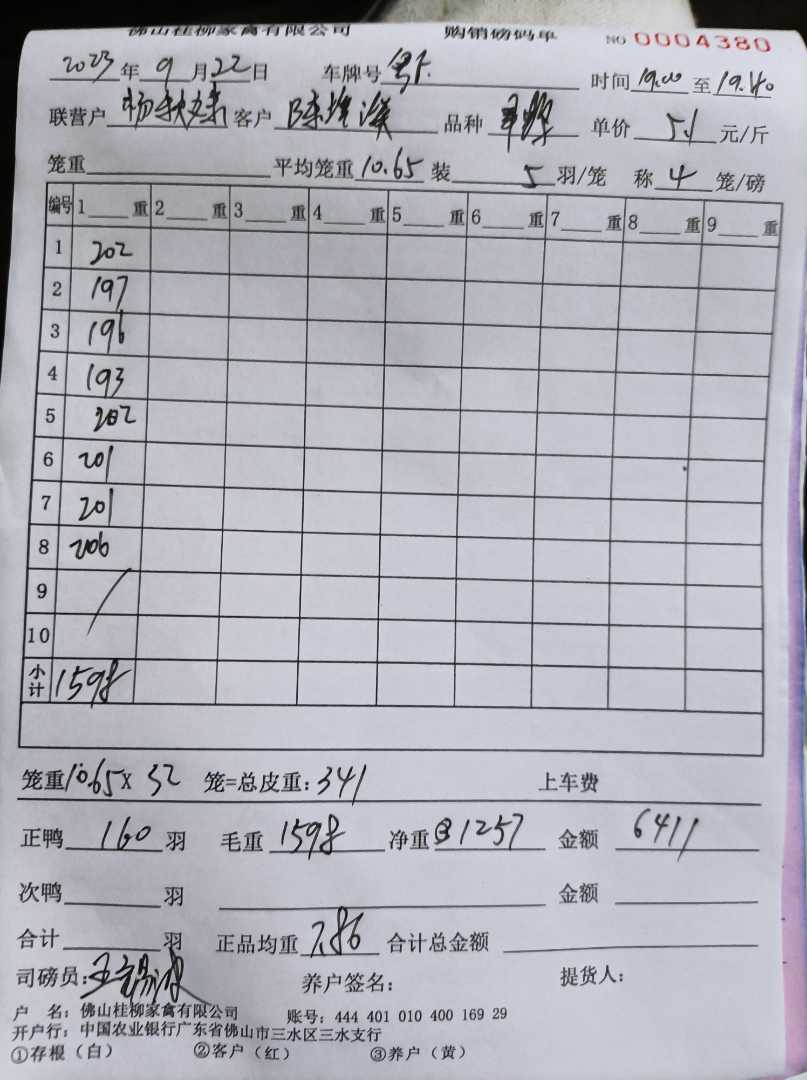 佛山桂柳家禽有限公司 购销磅码单 NO 0004380
2023年9月22日 车牌号粤F. 时间19:00至19.40
联营户杨秋 客户陈 品种 单价5.1元/斤
笼重 平均笼重10.65装5羽/笼 称4笼/磅
编号 1 重 2 重 3 重 4 重 5 重 6 重 7 重 8 重 9 重
1 202
2 197
3 196
4 193
5 202
6 201
7 201
8 206
9
10
小计 1598
笼重10.65X 32 笼=总皮重:341 上车费
正鸭160羽 毛重1598 净重1257 金额6411
次鸭 羽 金额
合计 羽 正品均重7.86 合计总金额
司磅员:王 养户签名: 提货人:
户 名:佛山桂柳家禽有限公司 账号:444 401 010 400 169 29
开户行:中国农业银行广东省佛山市三水区三水支行
①存根(白) ②客户(红) ③养户(黄)